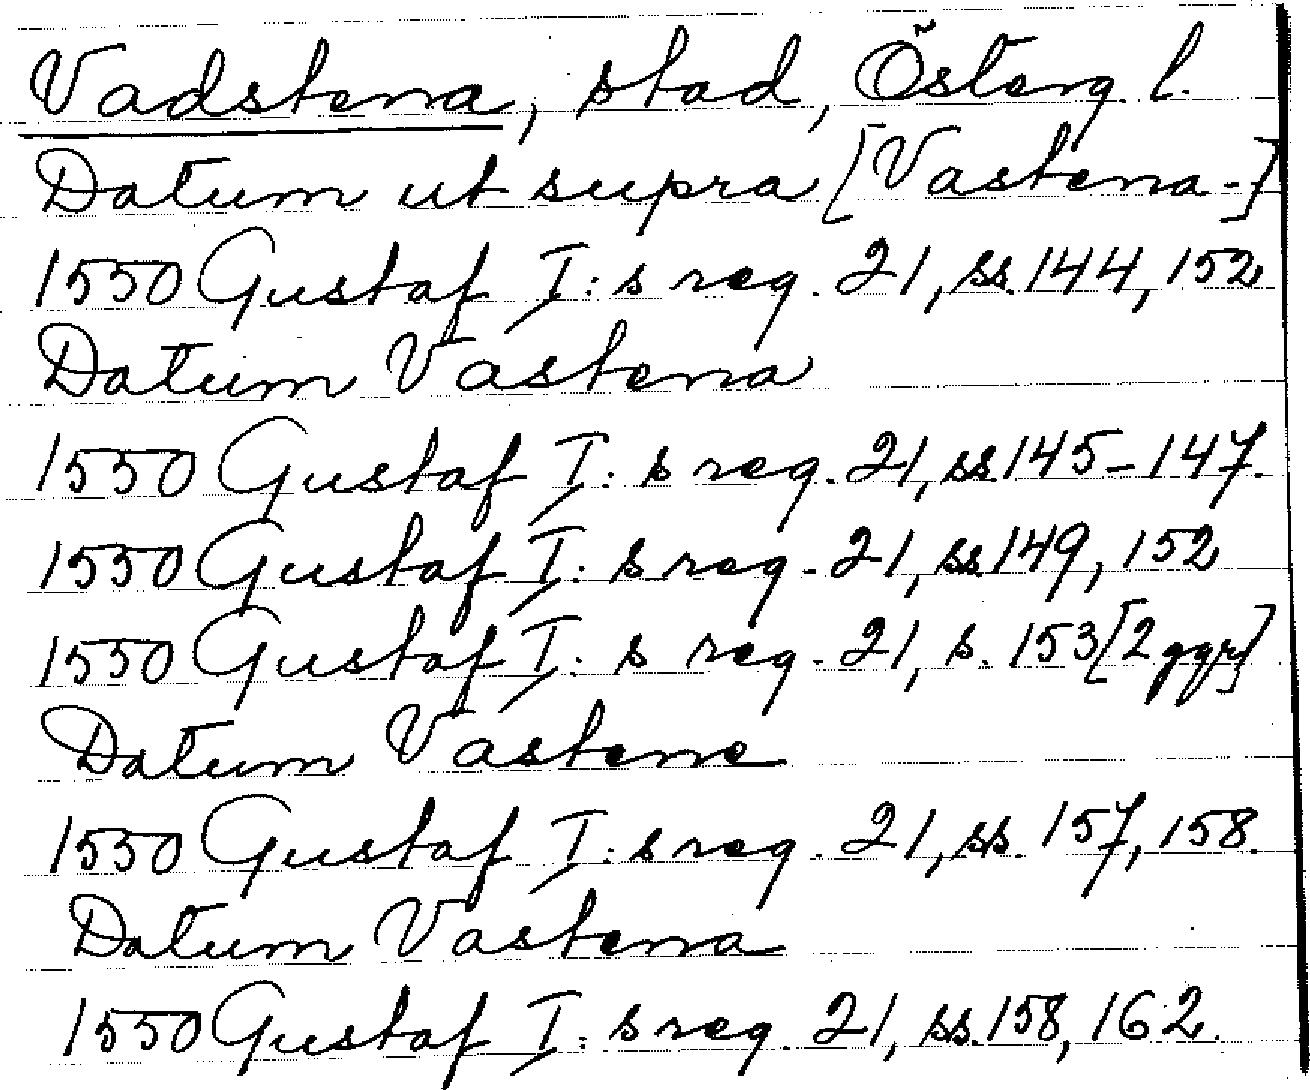 Vadstena, stad, Österg. l.
Datum ut supra [Vastena-]
1550 Gustaf I:s reg. 21, ss. 144, 152
Datum Vastena
1550 Gustaf I:s reg. 21, ss. 145-147.
1550 Gustaf I:s reg. 21, ss. 149, 152
1550 Gustaf I:s reg. 21, s. 153 [2 ggr]
Datum Vastene
1550 Gustaf I:s reg. 21, ss. 157, 158.
Datum Vastena
1550 Gustaf I:s reg. 21, ss. 158, 162.